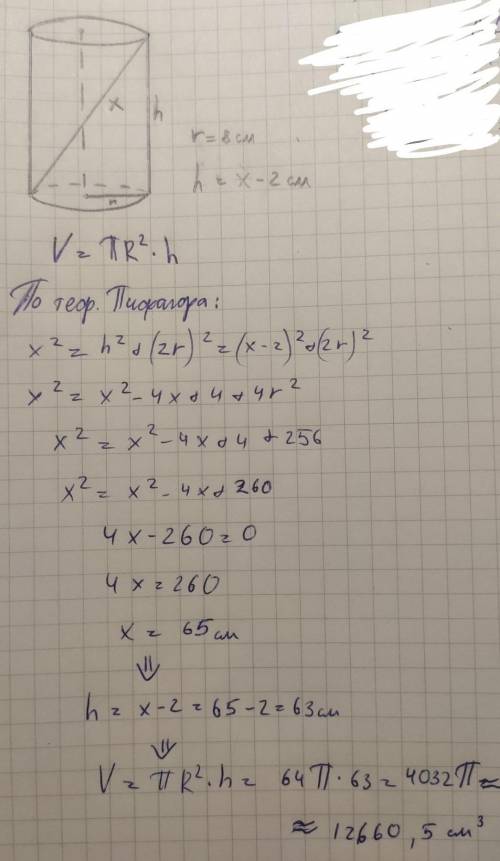 x
h
r
r = 8 см
h = x - 2 см
V = πR² · h
По теор. Пифагора:
x² = h² + (2r)² = (x-2)² + (2r)²
x² = x² - 4x + 4 + 4r²
x² = x² - 4x + 4 + 256
x² = x² - 4x + 260
4x - 260 = 0
4x = 260
x = 65 см
⇓
h = x - 2 = 65 - 2 = 63 см
⇓
V = πR² · h = 64π · 63 = 4032π ≈
≈ 12660,5 см³